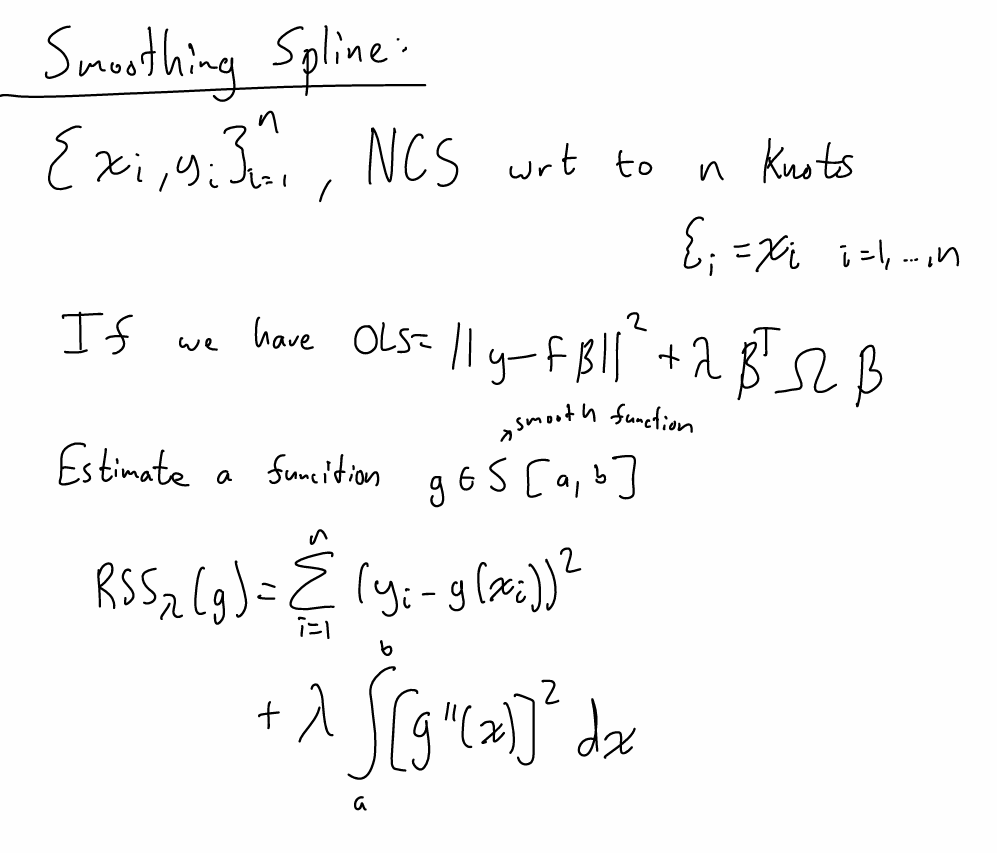 Smoothing Spline:
{x_i, y_i}_{i=1}^n, NCS wrt to n knots
ξ_i = x_i i=1,...,n
If we have OLS= ||y-Fβ||^2 + λ β^T Ω β
↗smooth function
Estimate a funcition g ∈ S [a, b]
RSS_λ(g) = Σ_{i=1}^n (y_i - g(x_i))^2
+ λ ∫_a^b [g''(x)]^2 dx